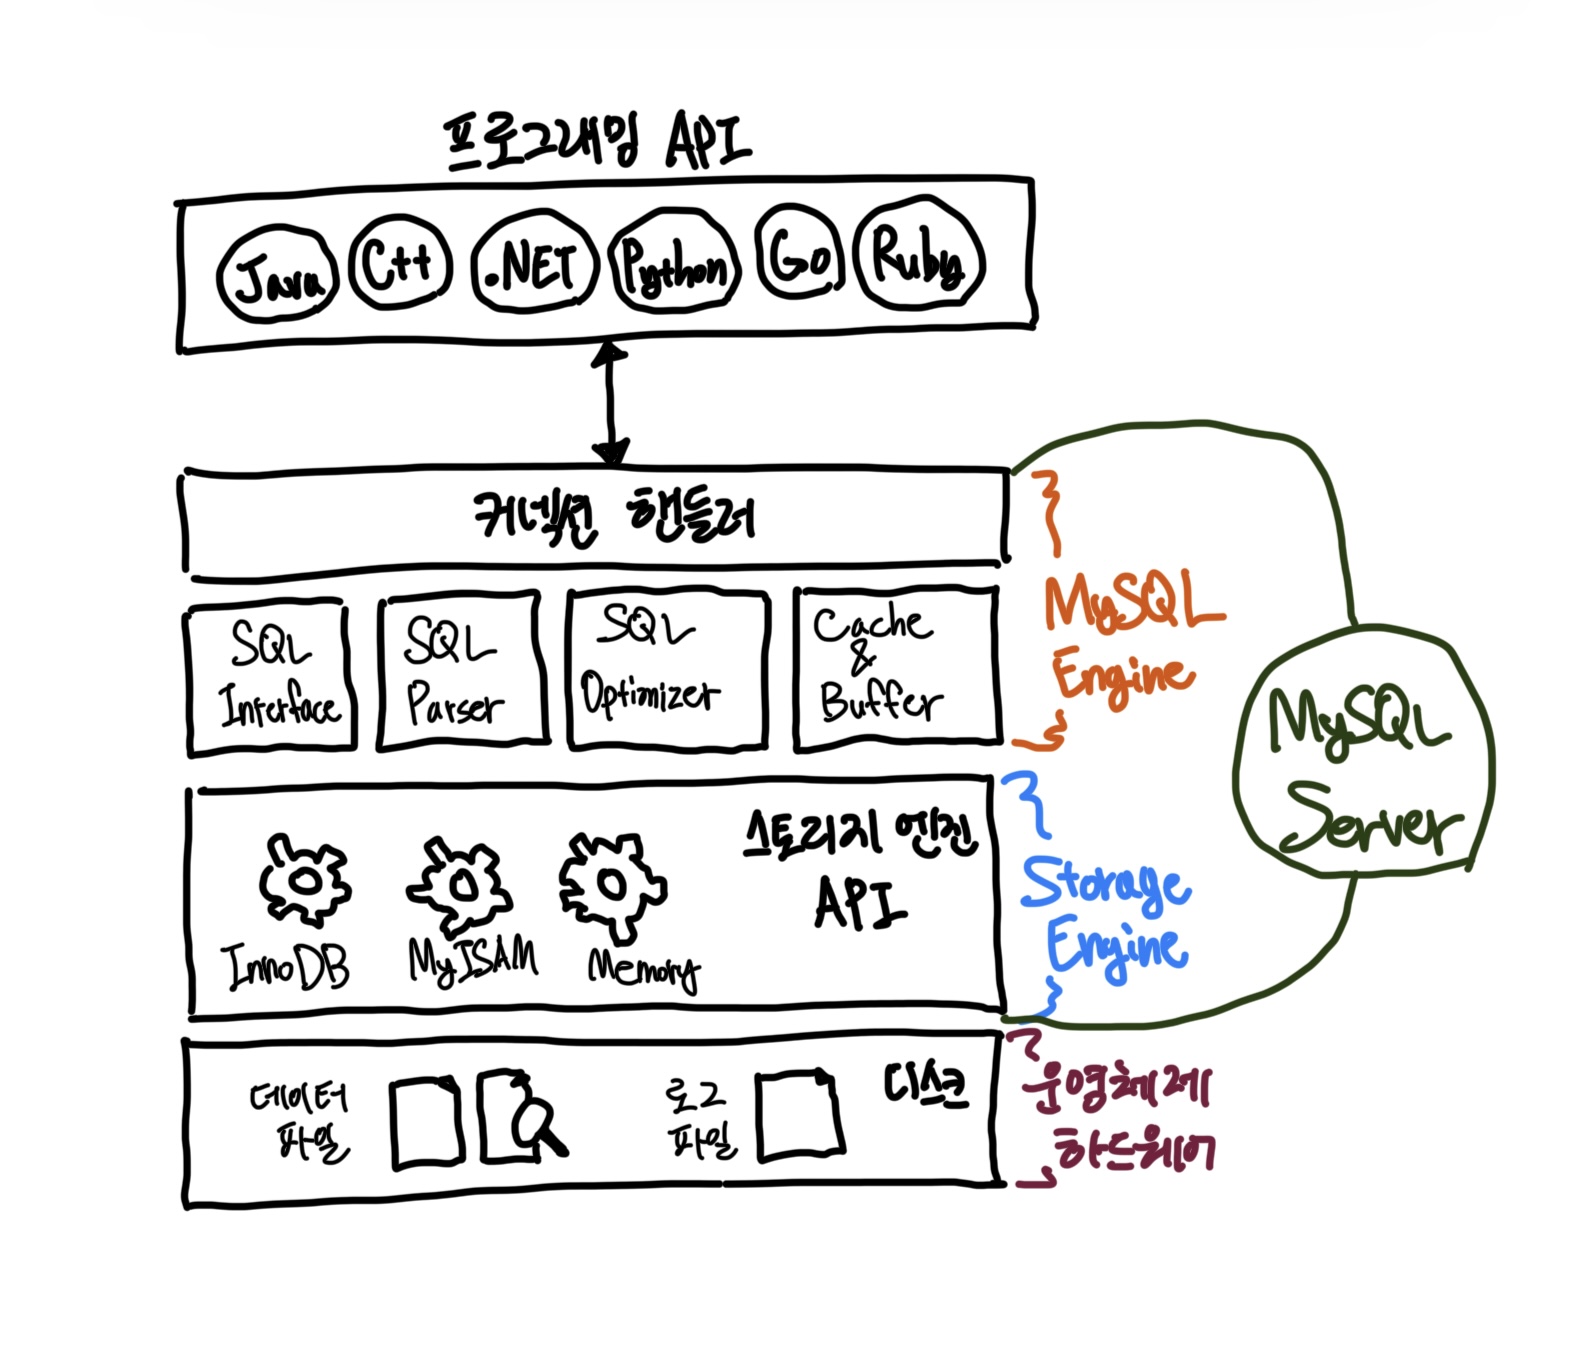 프로그래밍 API
Java C++ .NET Python Go Ruby
커넥션 핸들러
SQL
Interface
SQL
Parser
SQL
Optimizer
Cache
&
Buffer
MySQL
Engine
스토리지 엔진
API
InnoDB MyISAM Memory
Storage
Engine
MySQL
Server
데이터
파일
로그
파일
디스크
운영체제
하드웨어